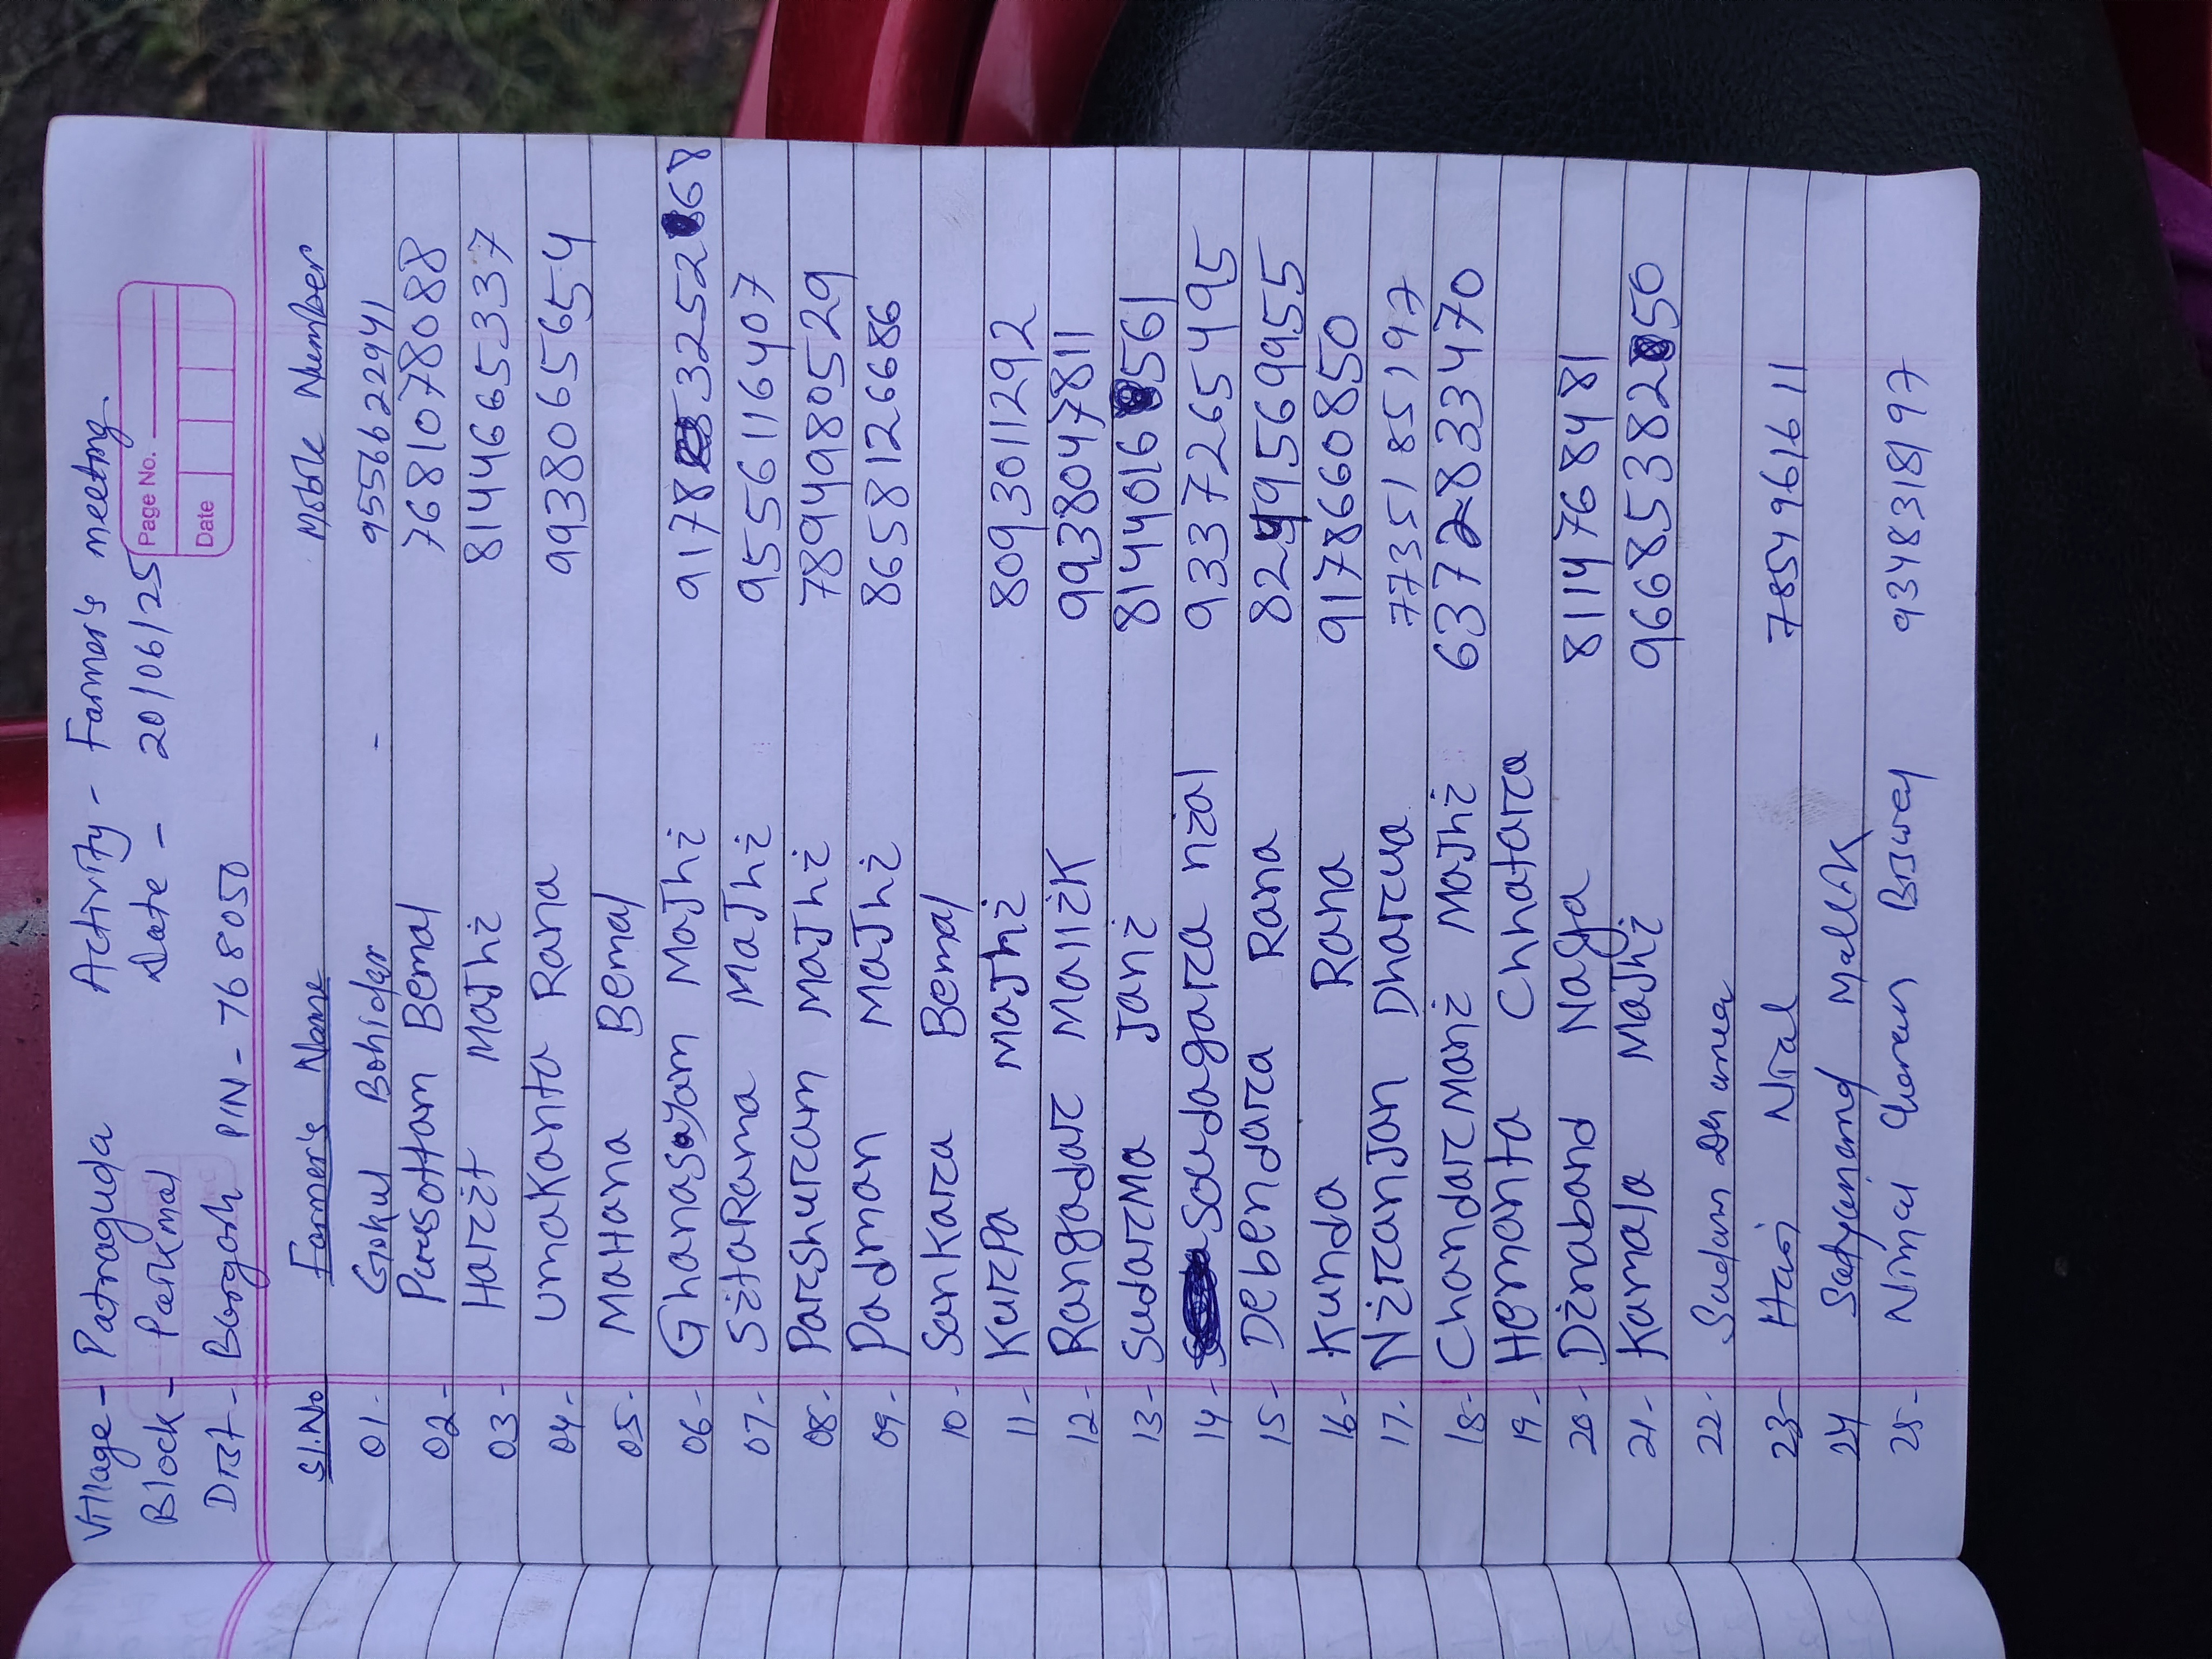 Village - Patraguda Activity - Farmer's meeting.
Block - Paikmal Date - 20/06/25
Page No.
Date
Dist - Bargarh PIN - 768050
Sl.No Farmer's Name Mobile Number
01- Gokul Bohidar - 9556622941
02- Parusottam Bemal 7681078088
03- Harit Majhi 8144665337
04- Umakanta Rana 9938065654
05- Mahana Bemal
06- Ghanasayam Majhi 9178 3252 68
07- Sitarama Majhi 9556116407
08- Parshuram Majhi 7894980529
09- Padman Majhi 8658126686
10- Sankara Bemal
11- Kurpa Majhi 8093011292
12- Rangadar Mallik 9938047811
13- Sudarma Jani 8144016 561
14- Soudagara nial 9337265495
15- Debendara Rana 8249569955
16- Kunda Rana 9178660850
17- Niranjan Dharua 7735185197
18- Chandarmani Majhi 6372833470
19- Hemanta Chhatara
20- Dinaband Naga 8114768481
21- Kamala Majhi 9668538250
22- Sudam
23- Hari Nial 7854961611
24 Satyanand Mallik
25- Nimai Charan 9348318197